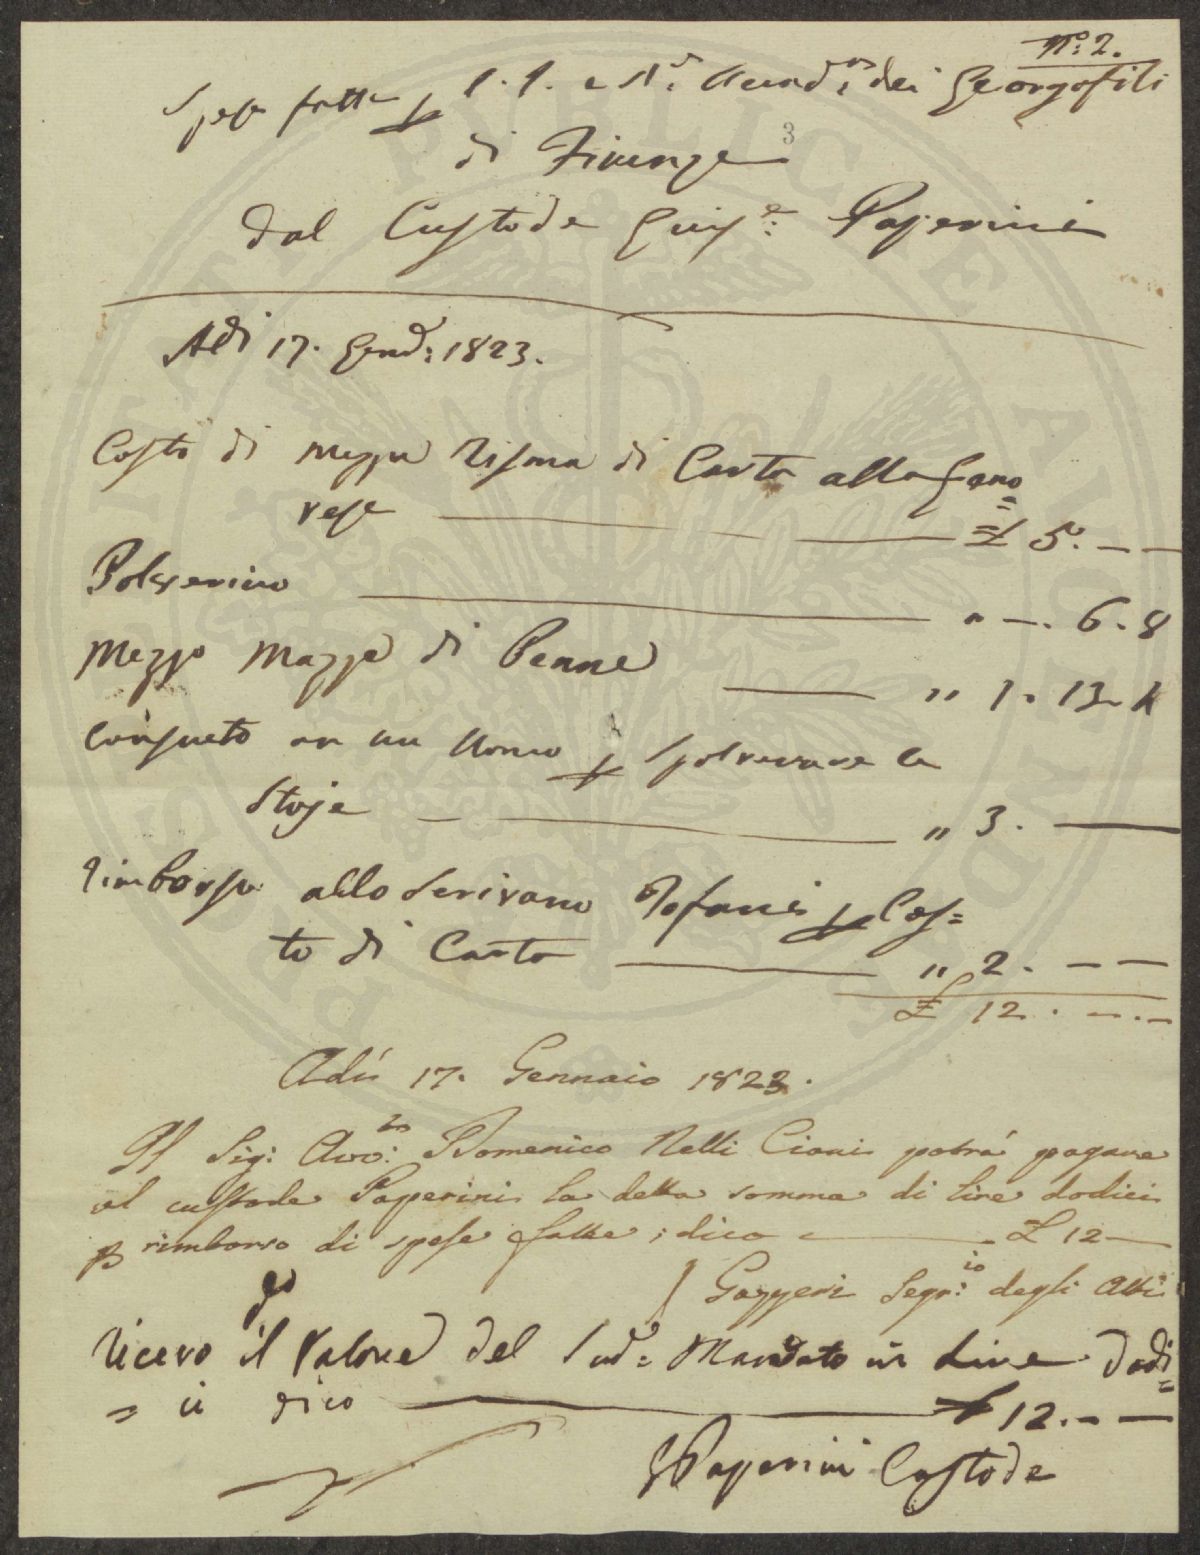 N.º 2.
Spese fatte p l'I. e R. Accad.a dei Georgofili
3
di Firenze
dal Custode Guis.e Paperini
Adi 17. Gend: 1823.
Costo di mezza Risma di Carta alla Geno
vese £ 5. — —
Polverino " —. 6. 8
Mezzo Mazzo di Penne " 1. 13. 4
Consueto a un Uomo p spolverare le
Stoje " 3. —
Rimborso allo Scrivano Tofani p Cos=
to di Carta " 2. — —
£ 12. —. —
Adì 17. Gennaio 1823.
Il Sig: Avvo: Domenico Nelli Ciani potrà pagare
al custode Paperini la detta somma di lire dodici
p rimborso di spese fatte; dico £ 12 —
Gazzeri Segr:io degli Atti
Ricevo il Valore del Sud.o Mandato in Lire Dodi=
= ci dico £ 12. — —
G Paperini Custode